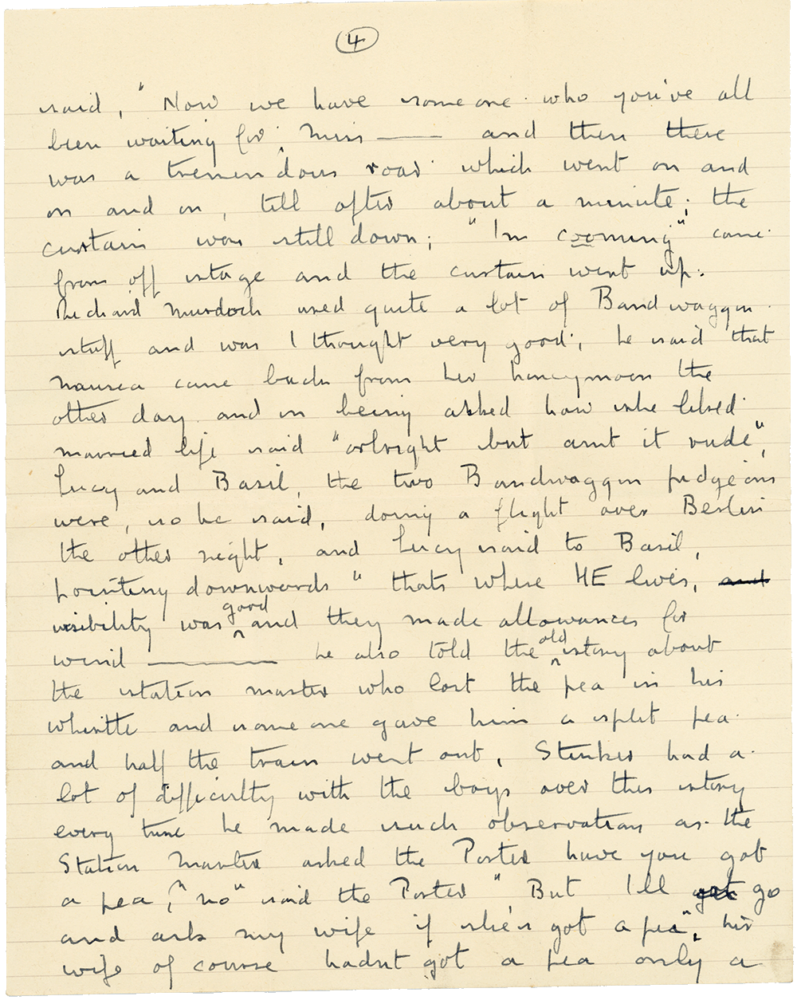 4
said, "Now we have someone who you've all
been waiting for, Miss —— and then there
was a tremendous roar which went on and
on and on, till after about a minute, the
curtain was still down; "Im cooming" came
from off stage and the curtain went up.
Richard Murdoch used quite a lot of Bandwaggon
stuff and was I thought very good; he said that
Nausea came back from her honeymoon the
other day and on being asked how she liked
married life said "orlright but aint it rude",
Lucy and Basil, the two Bandwaggon pidgeons
were, so he said, doing a flight over Berlin
the other night, and Lucy said to Basil,
pointing downwards "thats where HE lives, and
visibility was good and they made allowances for
wind ——— he also told the old story about
the station master who lost the pea in his
whistle and someone gave him a split pea
and half the train went out, Stinker had a
lot of difficulty with the boys over this story
every time he made such observations as the
Station Master asked the Porter have you got
a pea," "no" said the Porter", But Ill get go
and ask my wife if she's got a pea", his
wife of course hadnt got a pea only a